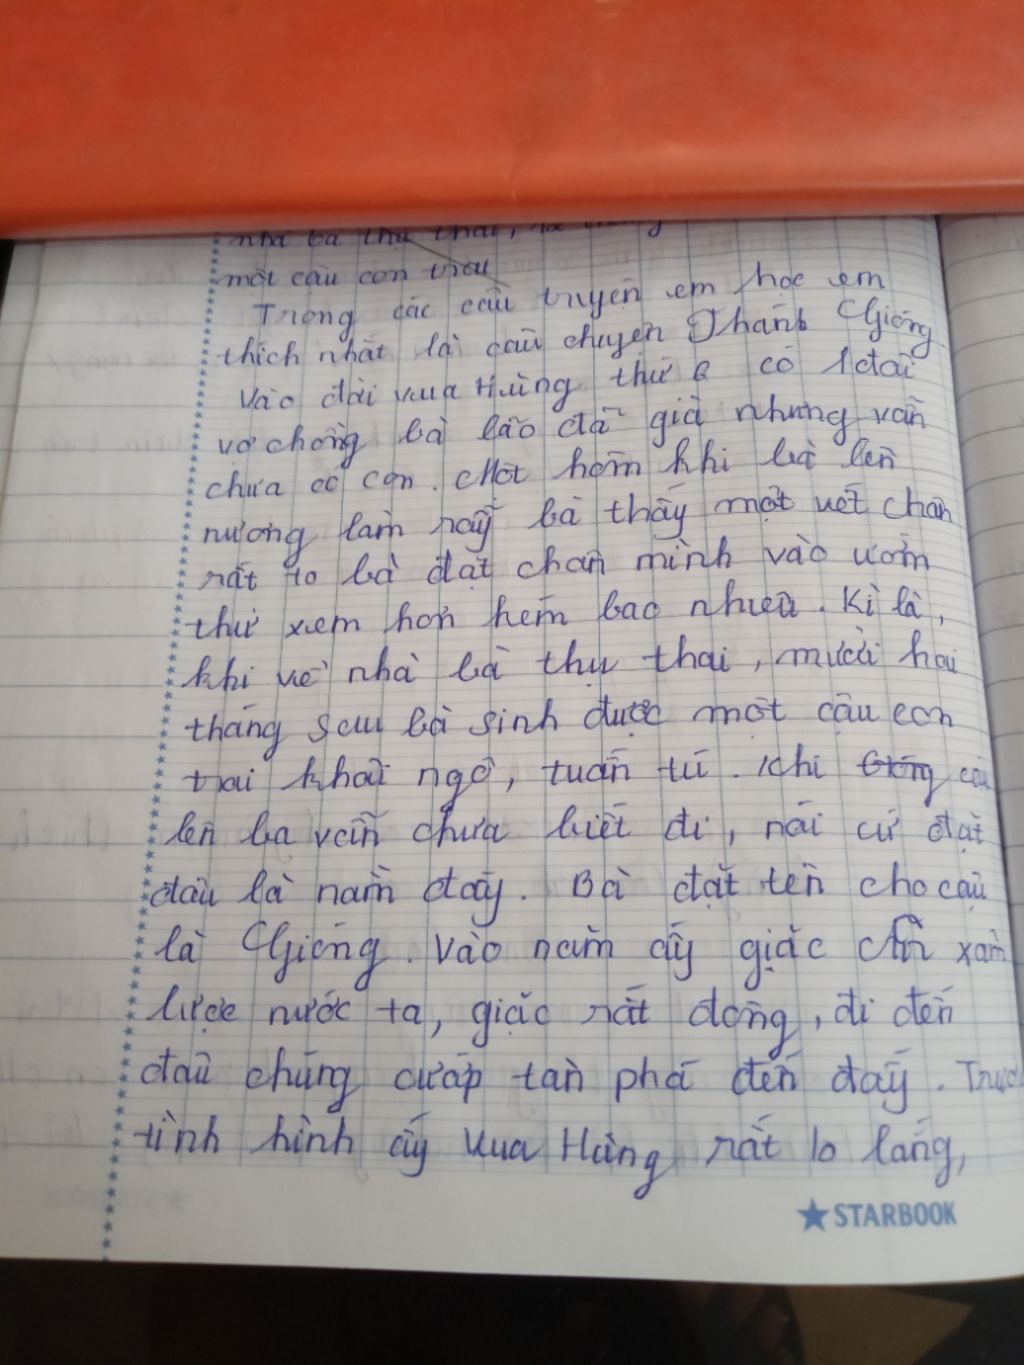 một cậu con trai
Trong các câu truyện em học em
thích nhất là câu chuyện Thánh Gióng
Vào đời vua Hùng thứ 6 có 1 đôi
vợ chồng bà lão đã già nhưng vẫn
chưa có con. Một hôm khi bà lên
nương làm rẫy bà thấy một vết chân
rất to bà đặt chân mình vào ướm
thử xem hơn kém bao nhiêu. Kì là,
khi về nhà bà thụ thai, mười hai
tháng sau bà sinh được một cậu con
trai khôi ngô, tuấn tú. Khi Gióng cậu
lên ba vẫn chưa biết đi, nói cứ đặt
đâu là nằm đấy. Bà đặt tên cho cậu
là Gióng. Vào năm ấy giặc Ân xâm
lược nước ta, giặc rất đông, đi đến
đâu chúng cướp tàn phá đến đấy. Trước
tình hình ấy Vua Hùng rất lo lắng,
STARBOOK